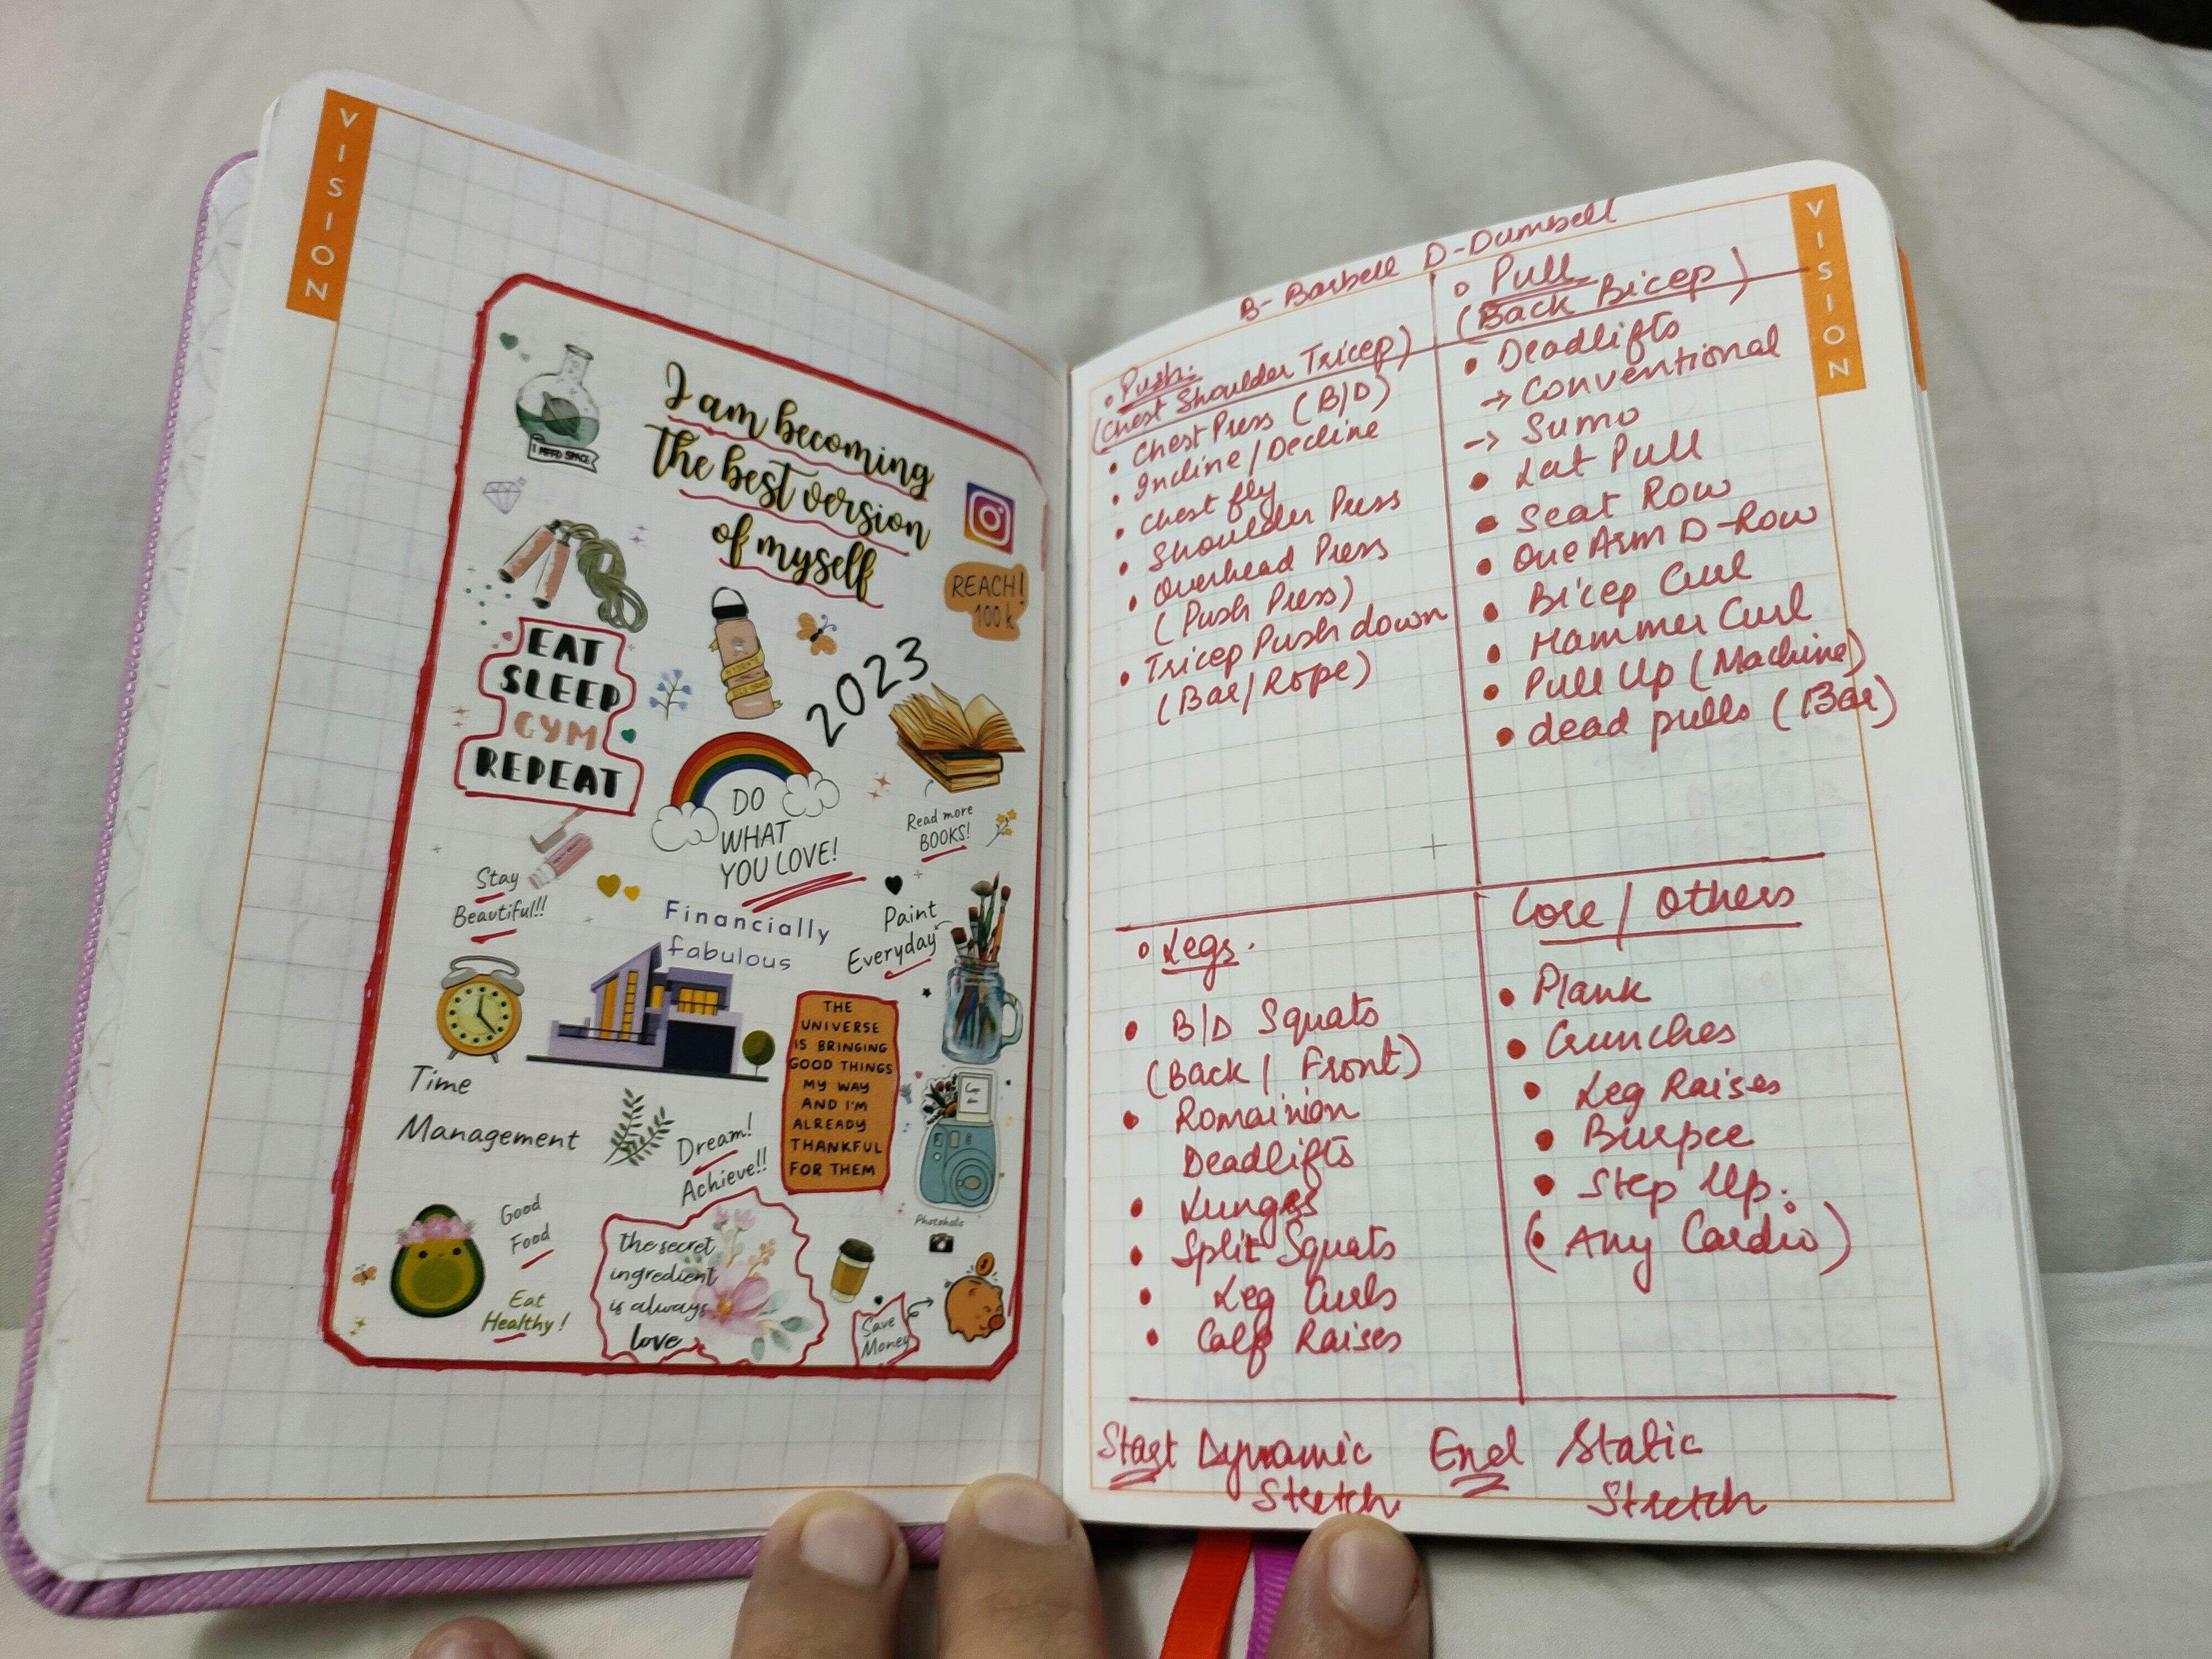 VISION
I NEED SPACE
I am becoming
The best version
of myself
REACH!
100k
EAT
SLEEP
GYM
REPEAT
2023
DO
WHAT
YOU LOVE!
Read more
BOOKS!
Stay
Beautiful!!
Financially
fabulous
Paint
Everyday
Time
Management
THE
UNIVERSE
IS BRINGING
GOOD THINGS
MY WAY
AND I'M
ALREADY
THANKFUL
FOR THEM
Dream!
Achieve!!
Photoholic
Good
Food
Eat
Healthy!
the secret
ingredient
is always
love
Save
Money
VISION
B- Barbell D-Dumbell
• Push:
(Chest Shoulder Tricep)
• Chest Press (B/D)
• Incline/Decline
• Chest fly
• Shoulder Press
• Overhead Press
(Push Press)
• Tricep Push down
(Bar/Rope)
• Pull
(Back Bicep)
• Deadlifts
→ Conventional
→ Sumo
• Lat Pull
• Seat Row
• One Arm D-Row
• Bicep Curl
• Hammer Curl
• Pull Up (Machine)
• dead pulls (Bar)
• Legs.
• B/D Squats
(Back / Front)
• Romainion
Deadlifts
• Lunges
• Split Squats
• Leg Curls
• Calf Raises
Core / Others
• Plank
• Crunches
• Leg Raises
• Burpee
• Step Up.
(• Any Cardio)
Start Dynamic
Stretch
End Static
Stretch